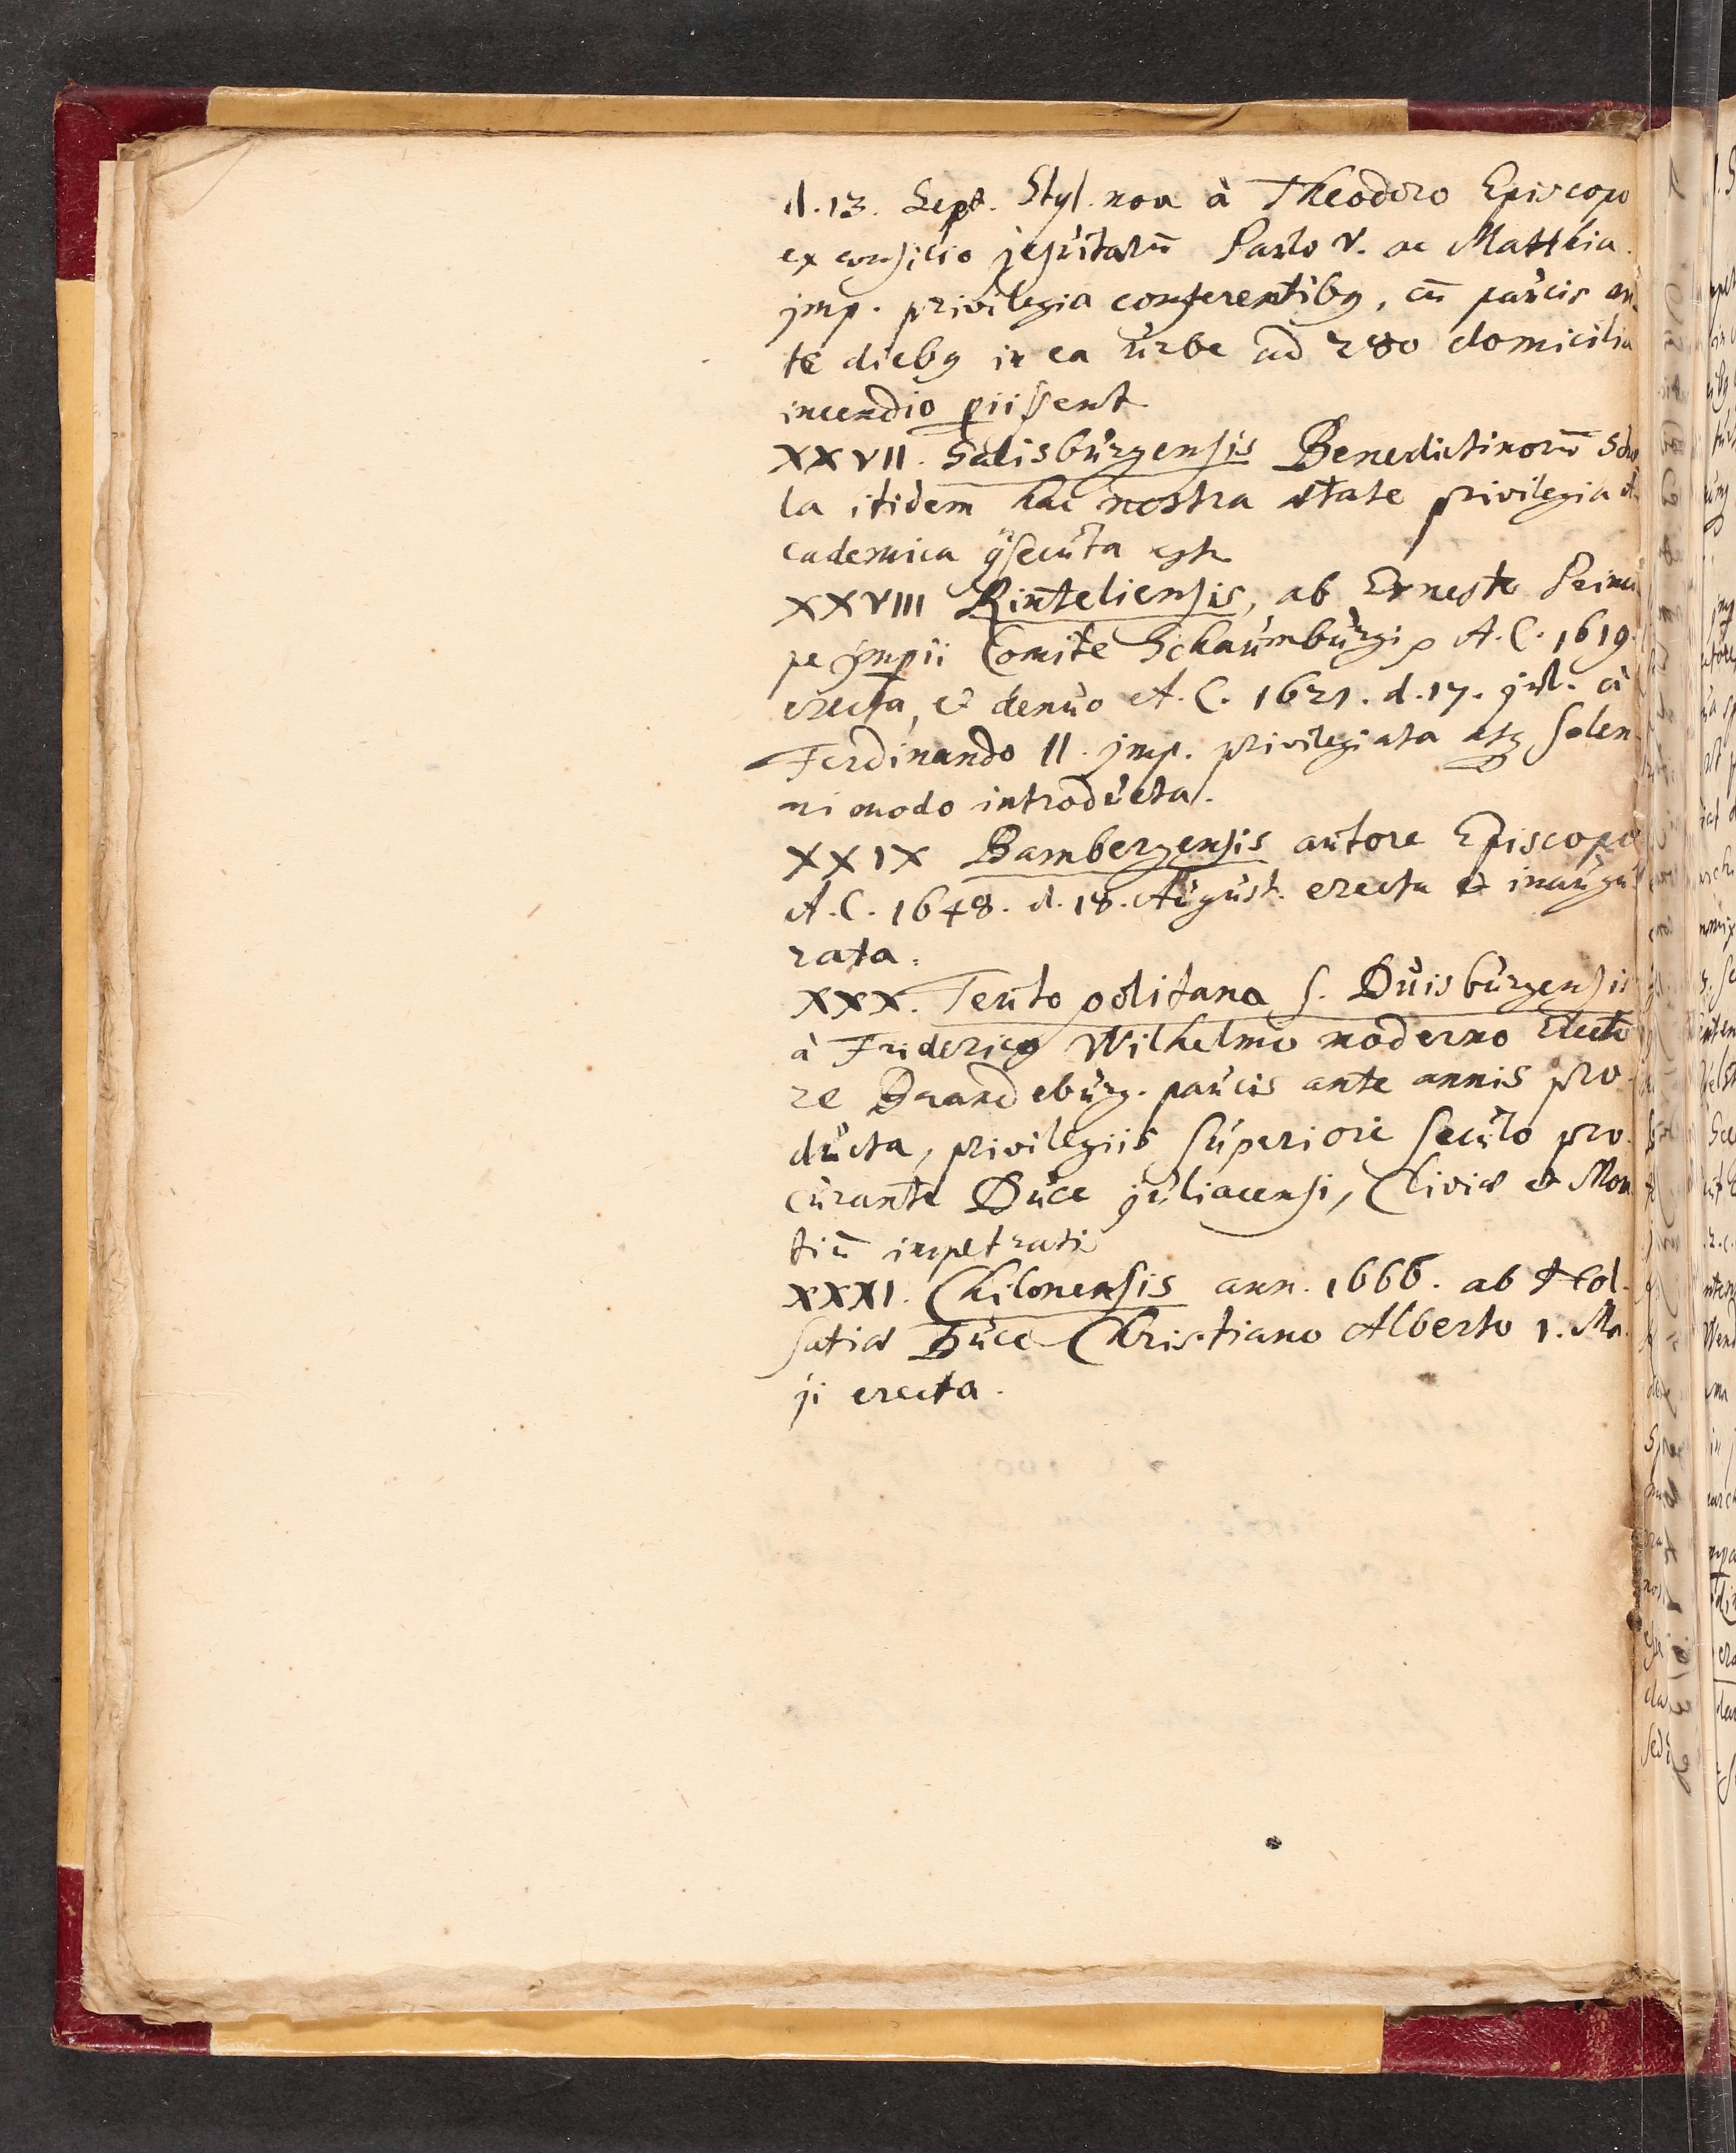 d. 13. Sept. Styl. nov. à Theodoro Episcopo
ex consilio jesuitarū Paulo V. ac Matthia
jmp. privilegia conferentibꝫ, cū paucis an-
te diebꝫ in ea ŭrbe ad 280 domicilia
incendio ꝑiissent
XXVII. Salisbŭrgensis Benedictinorū Scho
la itidem hac nostra ætate privilegia A-
cademica ꝯsecŭta est
XXVIII Rinteliensis, ab Ernesto Princi
pe jmpii Comite Schaŭmbŭrgi A. C. 1619.
erecta, et denŭo A. C. 1621. d. 17. jul. à
Ferdinando II. jmp. privilegiata atqꝫ solen-
ni modo introdŭcta.
XXIX Bambergensis aŭtore Episcopo
A. C. 1648. d. 18. Aŭgŭst. erecta et inaŭgŭ-
rata.
XXX. Teŭto politana s. Dŭisbŭrgensis
à Friderico Wilhelmo moderno Electo
re Brandebŭrg. paŭcis ante annis pro-
dŭcta, privilegiis sŭperiore secŭlo pro-
cŭrante Dŭce jŭliacensi, Cliviæ et Mon
tiū impetratis
XXXI. Chilonensis ann. 1666. ab Hol-
satiæ Dŭce Christiano Alberto 1. Ma-
ji erecta.